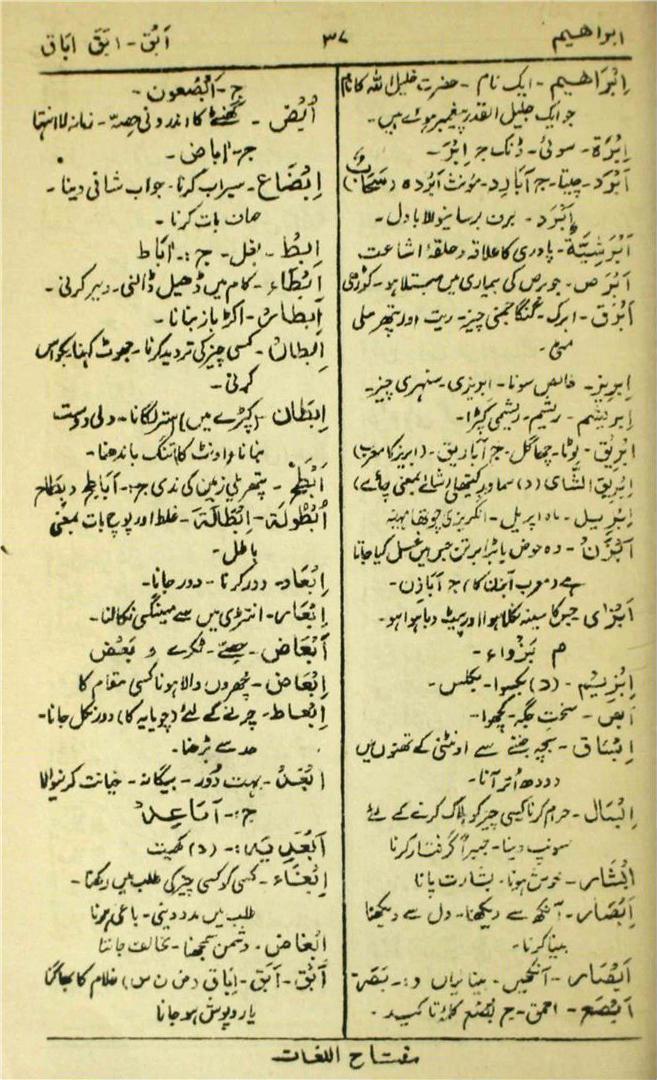 ابواهیم
۳۷
اَبُق - اَبَقَ اِبَاق
اِبْرَاهیم - ایک نام - حضرت خلیل اللہ کا نام
جو ایک جلیل القدر پیغمبر ہوئے ہیں -
اِبْرَة - سوئی - ڈنک ج اِبَر -
اَبْرَد - چیتا - ج اَبَارِد - مونث اَبْرَدہ
اَبْرَد - برف برسانیوالا بادل -
اَبْرَشِیَّة - پادری کا علاقہ و حلقۂ اشاعت
اَبْرَص - جو برص کی بیماری میں مبتلا ہو - کوڑھی
اَبْرَق - ابرک - چیز - ریت اور پتھر ملی
اِبرِیز - خالص سونا - ابریزی - سنہری چیز -
اِبرِیشم - ریشم - ریشمی کپڑا -
اِبْرِیق - لوٹا - چھاگل - ج اَبَارِیق -
اِبْرِیق الشای (د) سماور
اِبْرِیل - ماہ اپریل - انگریزی چوتھا مہینہ
اَبْزَن - وہ حوض یا بڑا برتن جس میں غسل کیا جاتا
ہے (معرب آبزن کا) ج اَبَازِن -
اَبْزٰی - جس کا سینہ نکلا ہوا اور پیٹ دبا ہوا ہو -
م بَزْواء -
اِبْزِیم - (د) بکسوا - بکلس -
اَبْص - سخت جگہ - کچھوا -
اِبْسَاق - بچہ جننے سے اونٹنی کے تھنوں میں
دودھ اُتر آنا -
اِبْسَال - حرام کرنا کسی چیز کو ہلاک کرنے کے لئے
سونپ دینا - جبراً گرفتار کرنا
اِبْشَار - خوش ہونا - بشارت پانا
اِبْصَار - آنکھ سے دیکھنا - دل سے دیکھنا
بینا کرنا -
اَبْصَار - آنکھیں - بینائیاں و :- بَصَر
اَبْصَع - احمق - ج بُصْع کلمۂ تاکید -
ج - اَبْصَعون -
اُبُض - گھٹنے کا اندرونی حصہ - زمانہ لا انتہا
ج - اٰباض -
اِبْضَاع - سیراب کرنا - جواب شافی دینا -
صاف بات کرنا -
اِبِط - بغل - ج :- اٰبَاط
اِبْطَاء - کام میں ڈھیل ڈالنی - دیر کرنی -
اِبْطَار - اکڑ باز بنانا -
اِبْطَال - کسی چیز کی تردید کرنا - جھوٹ کہنا بکواس
کرنی -
اِبْطَان - (کپڑے میں) استر لگانا - دلی دوست
بنانا - اونٹ کا تنگ باندھنا -
اَبْطَح - پتھریلی زمین کی ندی ج :- اَبَاطِح و بِطَاح
اُبْطُولَة - اِبْطَالَة - غلط اور پوچ بات بمعنی
باطل -
اِبْعَاد - دور کرنا - دور جانا -
اِبْعَار - انتڑی میں سے مینگنی نکالنا -
اَبْعَاض - حصے - ٹکڑے و بَعْض
اِبْعَاض - مچھروں والا ہونا کسی مقام کا
اِبْعَاط - چرنے کے لئے (چوپایہ کا) دور نکل جانا -
حد سے بڑھنا -
اَبْعَد - بہت دُور - بیگانہ - خیانت کرنیوالا
ج :- اَبَاعِد
:- (د) کھیت
اِبْغَاء - کسی کو کسی چیز کی طلب میں دیکھنا -
طلب میں مدد دینی - باغی ہونا
اِبْغاض - دشمن سمجھنا - مخالف جاننا
اَبْق - اَبَق - اِبَاق (ض ن س) غلام کا بھاگنا
یا روپوش ہو جانا
مفتاح اللغات